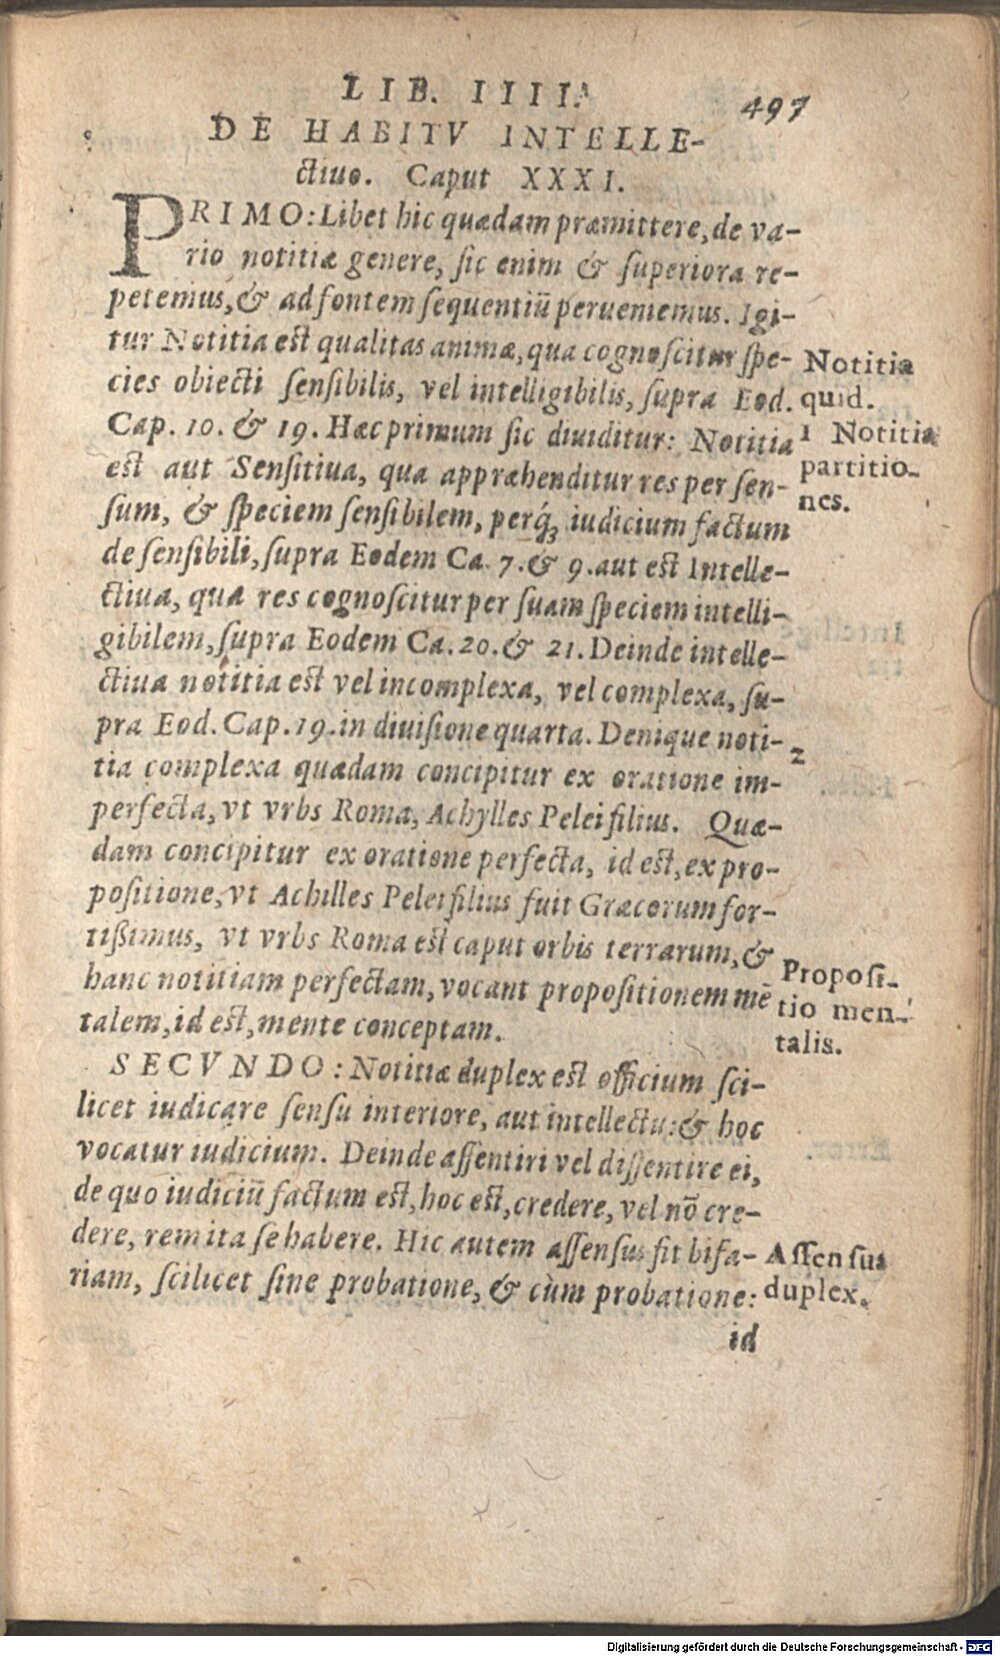 LIB. IIII.
497
DE HABITV INTELLE-
ctiuo. Caput XXXI.
PRIMO: Libet hic quædam præmittere, de va-
rio notitiæ genere, sic enim & superiora re-
petemus, & ad fontem sequentiū perueniemus. Igi-
tur Notitia est qualitas animæ, qua cognoscitur spe-
cies obiecti sensibilis, vel intelligibilis, supra Eod.
Cap. 10. & 19. Hæc primum sic diuiditur: Notitia
est aut Sensitiua, qua appræhenditur res per sen-
sum, & speciem sensibilem, perq́; iudicium factum
de sensibili, supra Eodem Ca. 7. & 9. aut est Intelle-
ctiua, qua res cognoscitur per suam speciem intelli-
gibilem, supra Eodem Ca. 20. & 21. Deinde intelle-
ctiua notitia est vel incomplexa, vel complexa, su-
pra Eod. Cap. 19. in diuisione quarta. Denique noti-
tia complexa quædam concipitur ex oratione im-
perfecta, vt vrbs Roma, Achylles Pelei filius. Quæ-
dam concipitur ex oratione perfecta, id est, ex pro-
positione, vt Achilles Pelei filius fuit Græcorum for-
tißimus, vt vrbs Roma est caput orbis terrarum, &
hanc notitiam perfectam, vocant propositionem mē
talem, id est, mente conceptam.
SECVNDO: Notitiæ duplex est officium sci-
licet iudicare sensu interiore, aut intellectu: & hoc
vocatur iudicium. Deinde assentiri vel dissentire ei,
de quo iudiciū factum est, hoc est, credere, vel nō cre-
dere, rem ita se habere. Hic autem assensus fit bifa-
riam, scilicet sine probatione, & cùm probatione:
id
Notitia
quid.
1 Notitiæ
partitio-
nes.
2
Proposi-
tio men-
talis.
Assensus
duplex.
Digitalisierung gefördert durch die Deutsche Forschungsgemeinschaft - DFG